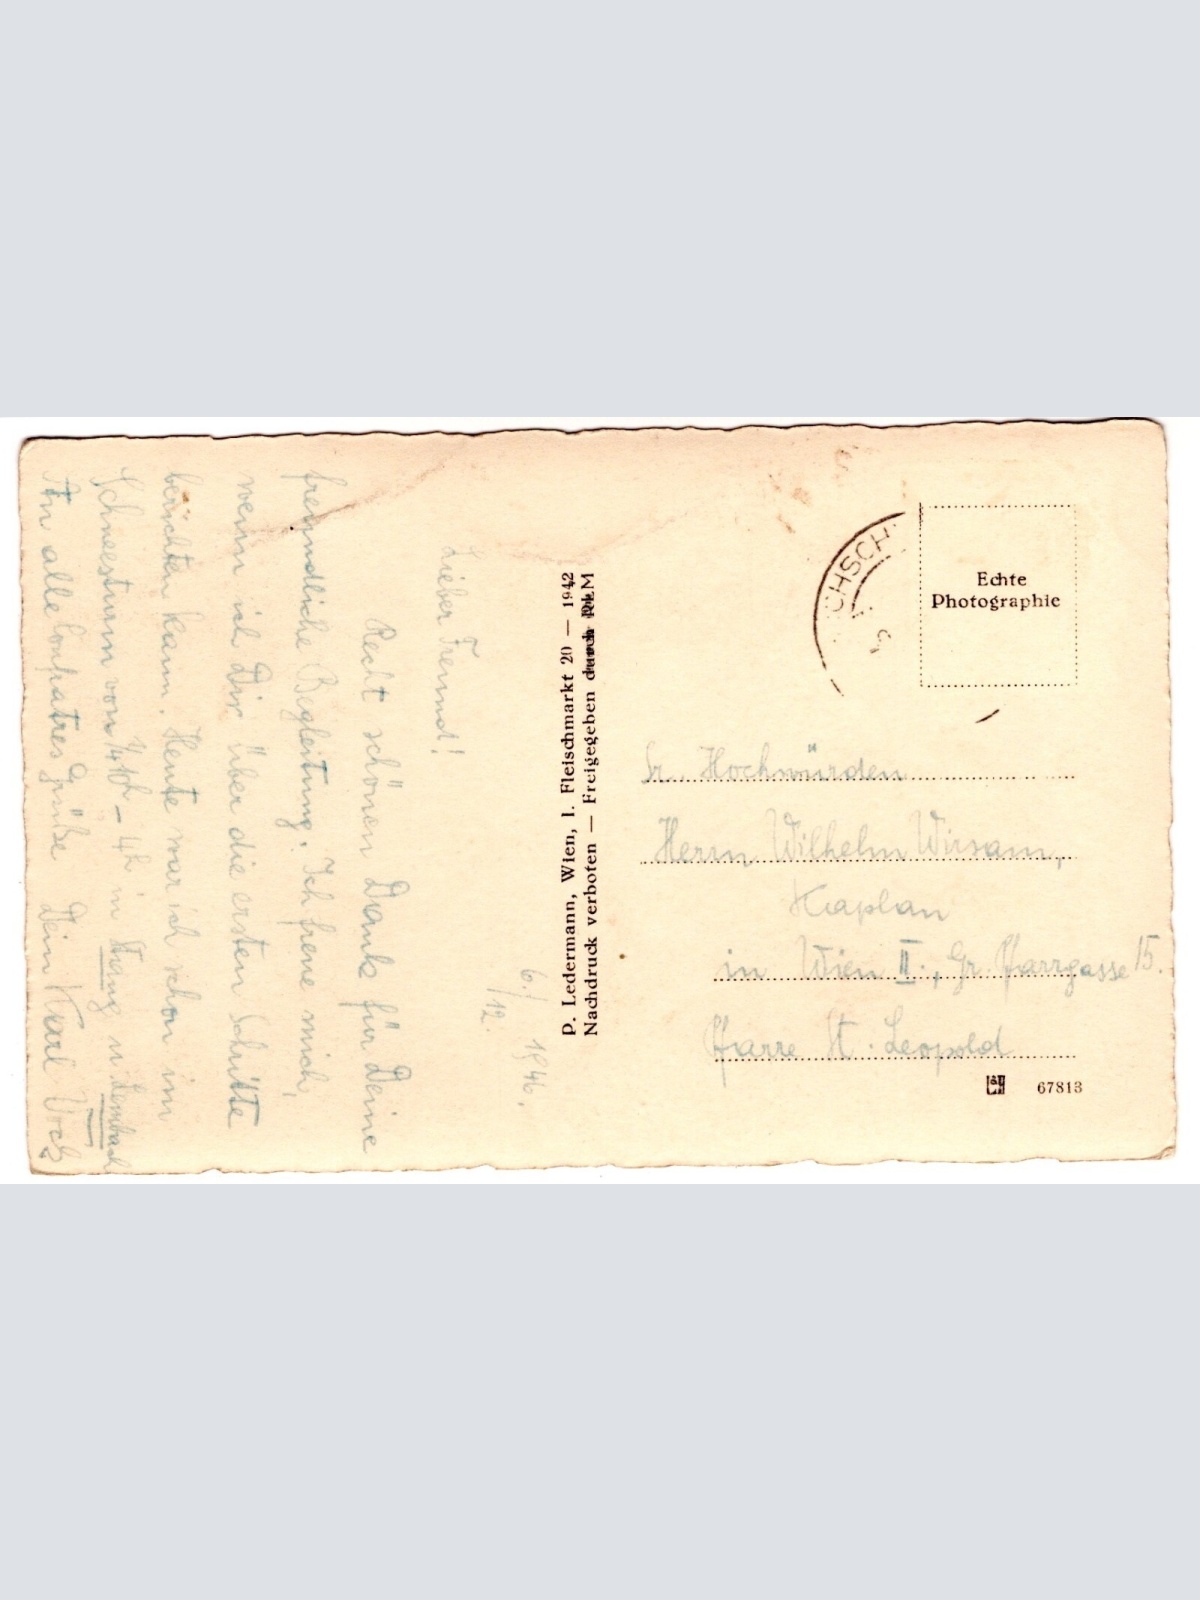 6./12. 1946.
Lieber Freund!
Recht schönen Dank für Deine
freundliche Begleitung. Ich freue mich,
wenn ich Dir über die ersten Schritte
berichten kann. Heute war ich schon im
Schneesturm von - 4h in u.
An alle Compatres Grüße Dein Karl
P. Ledermann, Wien, I. Fleischmarkt 20 — 1942
Nachdruck verboten — Freigegeben durch RLM
CHSCH
Echte
Photographie
Sr. Hochwürden
Herrn Wilhelm Wirsam,
Kaplan
in Wien II., Gr. Pfarrgasse 15.
Pfarre St. Leopold
67813